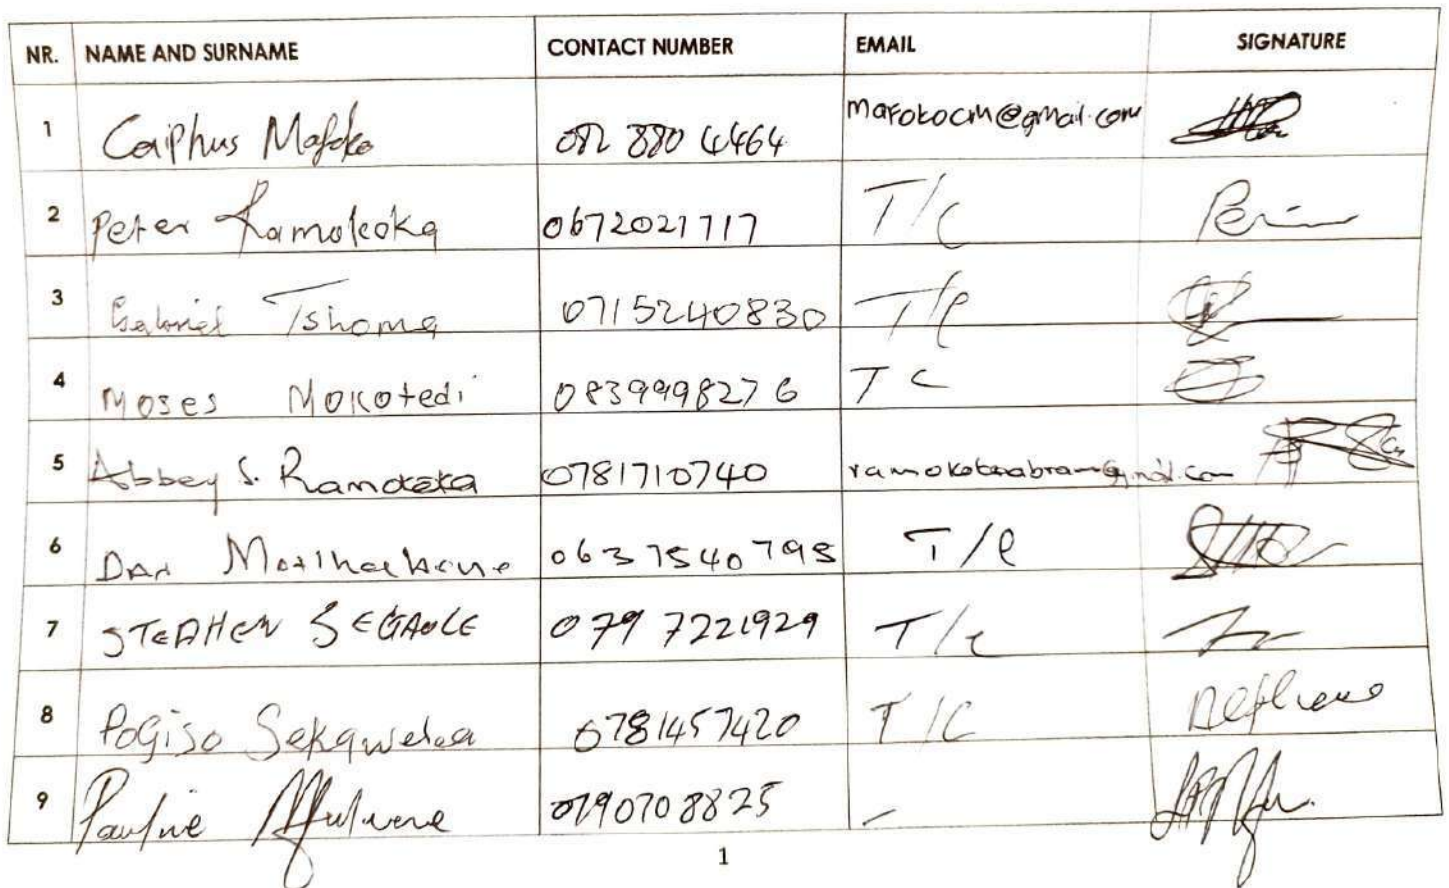 NR. NAME AND SURNAME CONTACT NUMBER EMAIL SIGNATURE
1 Caiphus Mafoko 082 880 4464 mafokocm@gmail.com
2 Peter Ramokoka 0672021717 T/C
3 Gabriel Tshoma 0715240830 T/C
4 Moses Mokotedi 0839998276 T C
5 Abbey S. Ramokoka 0781710740
6 Dan 0637540795 T/C
7 STEPHEN SEGAOLE 079 7221929 T/C
8 Pogiso 0781457420 T/C
9 Pauline 0790708825 -
1